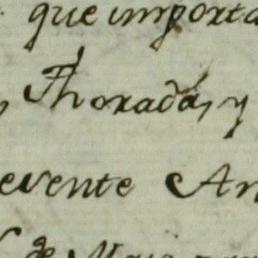 que importa
Thorada, y
evente An